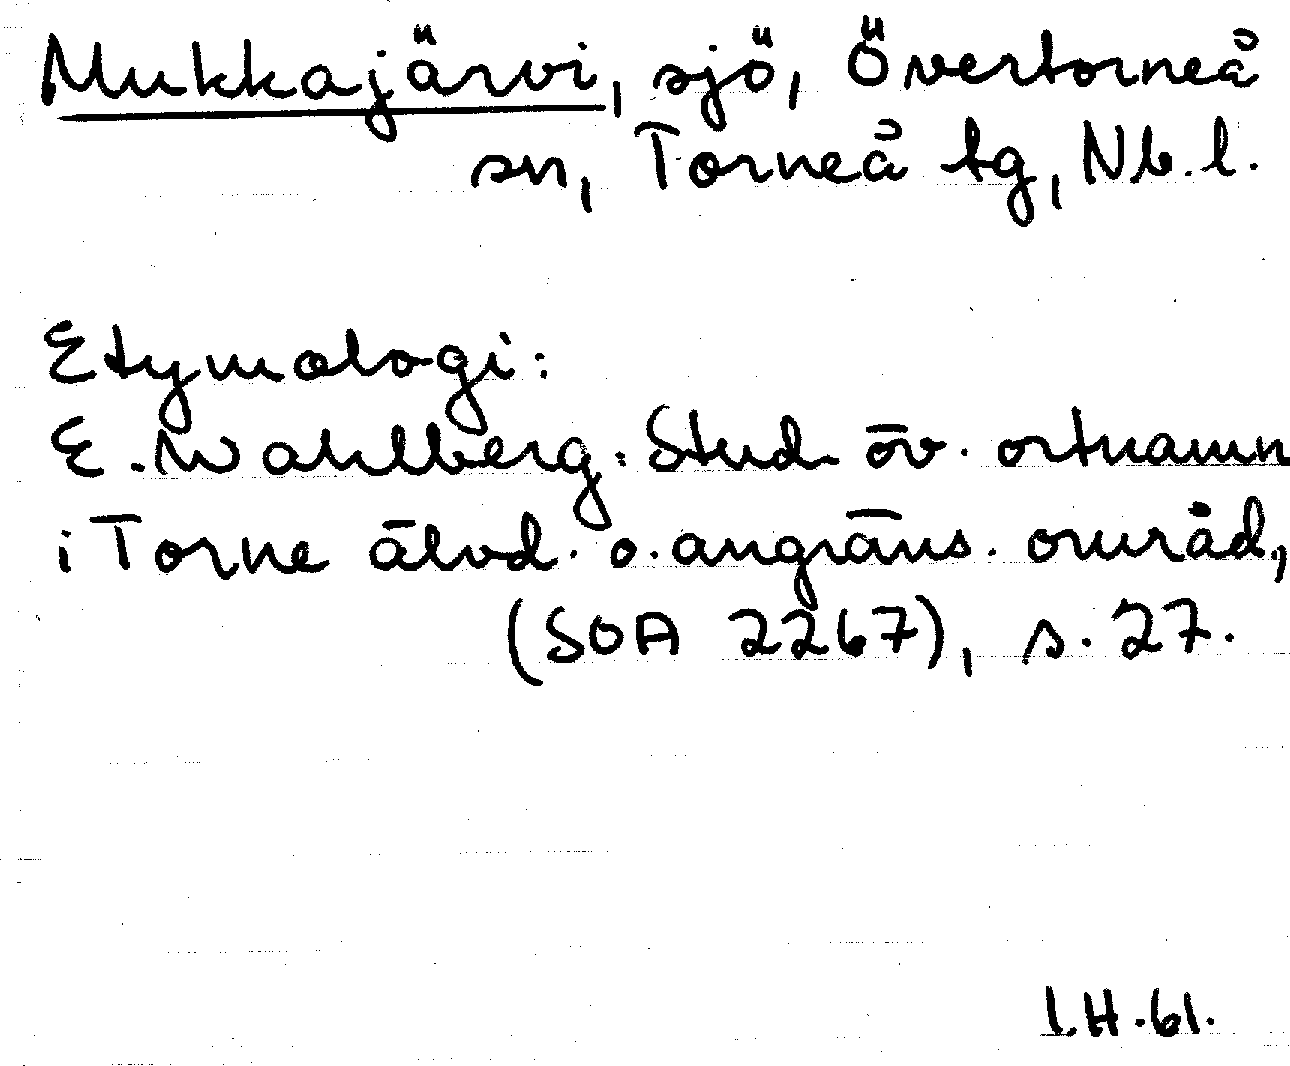 Mukkajärvi, sjö, Övertorneå
sn, Torneå tg, Nb. l.
Etymologi:
E. Wahlberg: Stud. öv. ortnamn
i Torne älvd. o. angräns. områd.,
(SOA 2267), s. 27.
I.H.61.